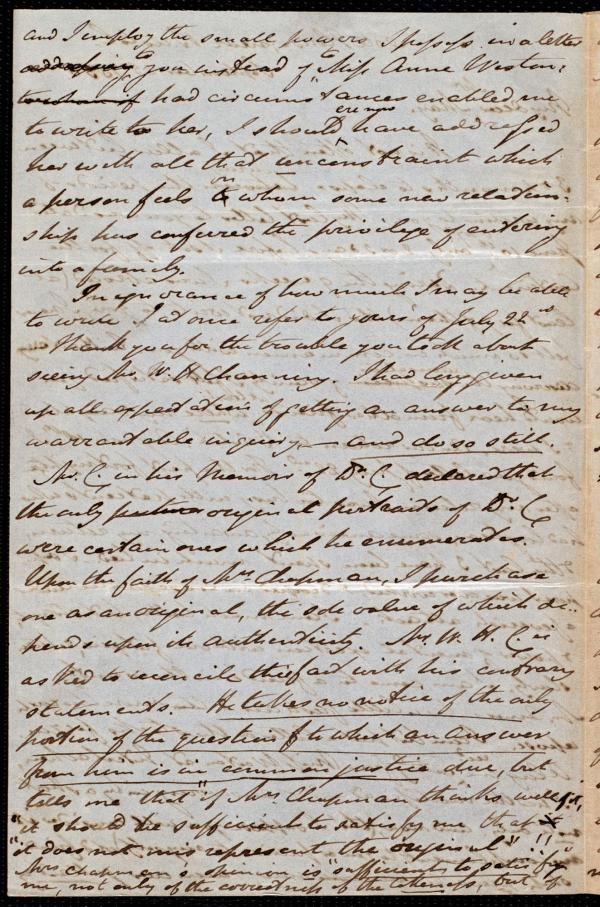 and I employ the small powers I possess in a letter
addressing to you instead of to Miss Anne Weston:
to whom if had circumstances enabled me
to write to her, I should ere now have addressed
her with all that unconstraint which
a person feels on whom some new relation-
ship has conferred the privilege of entering
into a family.
In ignorance of how much I may be able
to write I at once refer to yours of July 22nd
Thank you for the trouble you took about
seeing Mr. W. H. Channing. I had long given
up all expectation of getting an answer to my
warrantable inquiry — and do so still.
Mr. C. in his Memoir of Dr. C. declared that
the only pictures original portraits of Dr. C
were certain ones which he enumerates.
Upon the faith of Mrs Chapman, I purchase
one as an original, the sole value of which de-
pends upon its authenticity. Mr. W. H. C. is
asked to reconcile this fact with his contrary
statements. He takes no notice of the only
portion of the question to which an answer
from him is in common justice due, but
tells me that "if Mrs. Chapman thinks well of it,
"it should be sufficient to satisfy me that
"it does not misrepresent the original" !!
Mrs Chapman's opinion is "sufficient to satisfy"
me, not only of the correctness of the likeness, but of